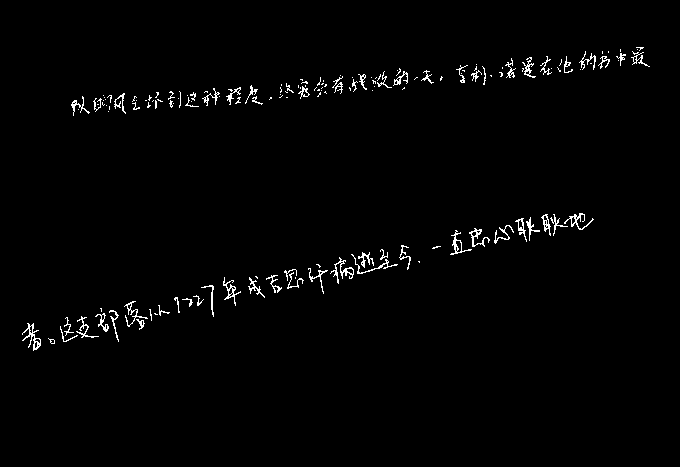 队的风气坏到这种程度，终究会有战败的一天。亨利·诺曼在他的书中最
者。这支部落从1227年成吉思汗病逝至今，一直忠心耿耿地